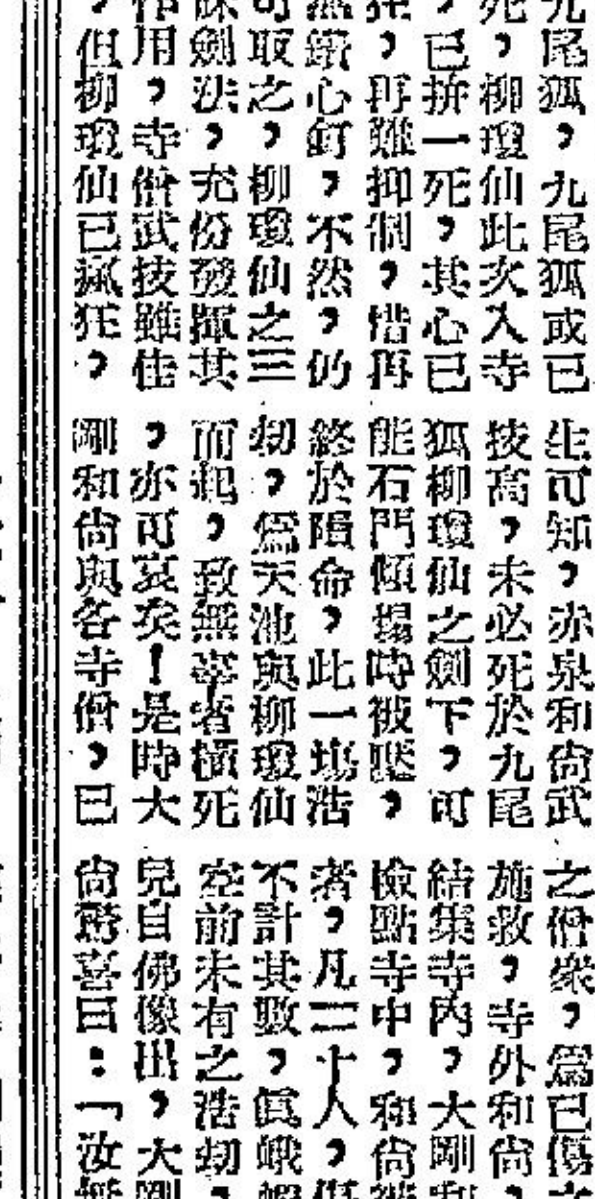 九尾狐，九尾狐或已
死，柳瓊仙此次入寺
，已拚一死，其心已
狂，再難抑制，惜再
無鐵心釘，不然，仍
可取之，柳瓊仙之三
昧劍法，充份發揮其
作用，寺僧武技雖佳
，但柳瓊仙已瘋狂，
生可知，赤泉和尙武
技高，未必死於九尾
狐柳瓊仙之劍下，可
能石門傾塲時被壓，
終於隕命，此一塲浩
刧，爲天池與柳瓊仙
而起，致無辜者橫死
，亦可哀矣！是時大
剛和尙與各寺僧，已
之僧衆，爲已傷
施救，寺外和尙，
結集寺內，大剛和
檢點寺中，和尙
者，凡二十人，傷
不計其數，眞峨嵋
空前未有之浩刧，
兒自佛像出，大剛
尙驚喜曰：「汝無